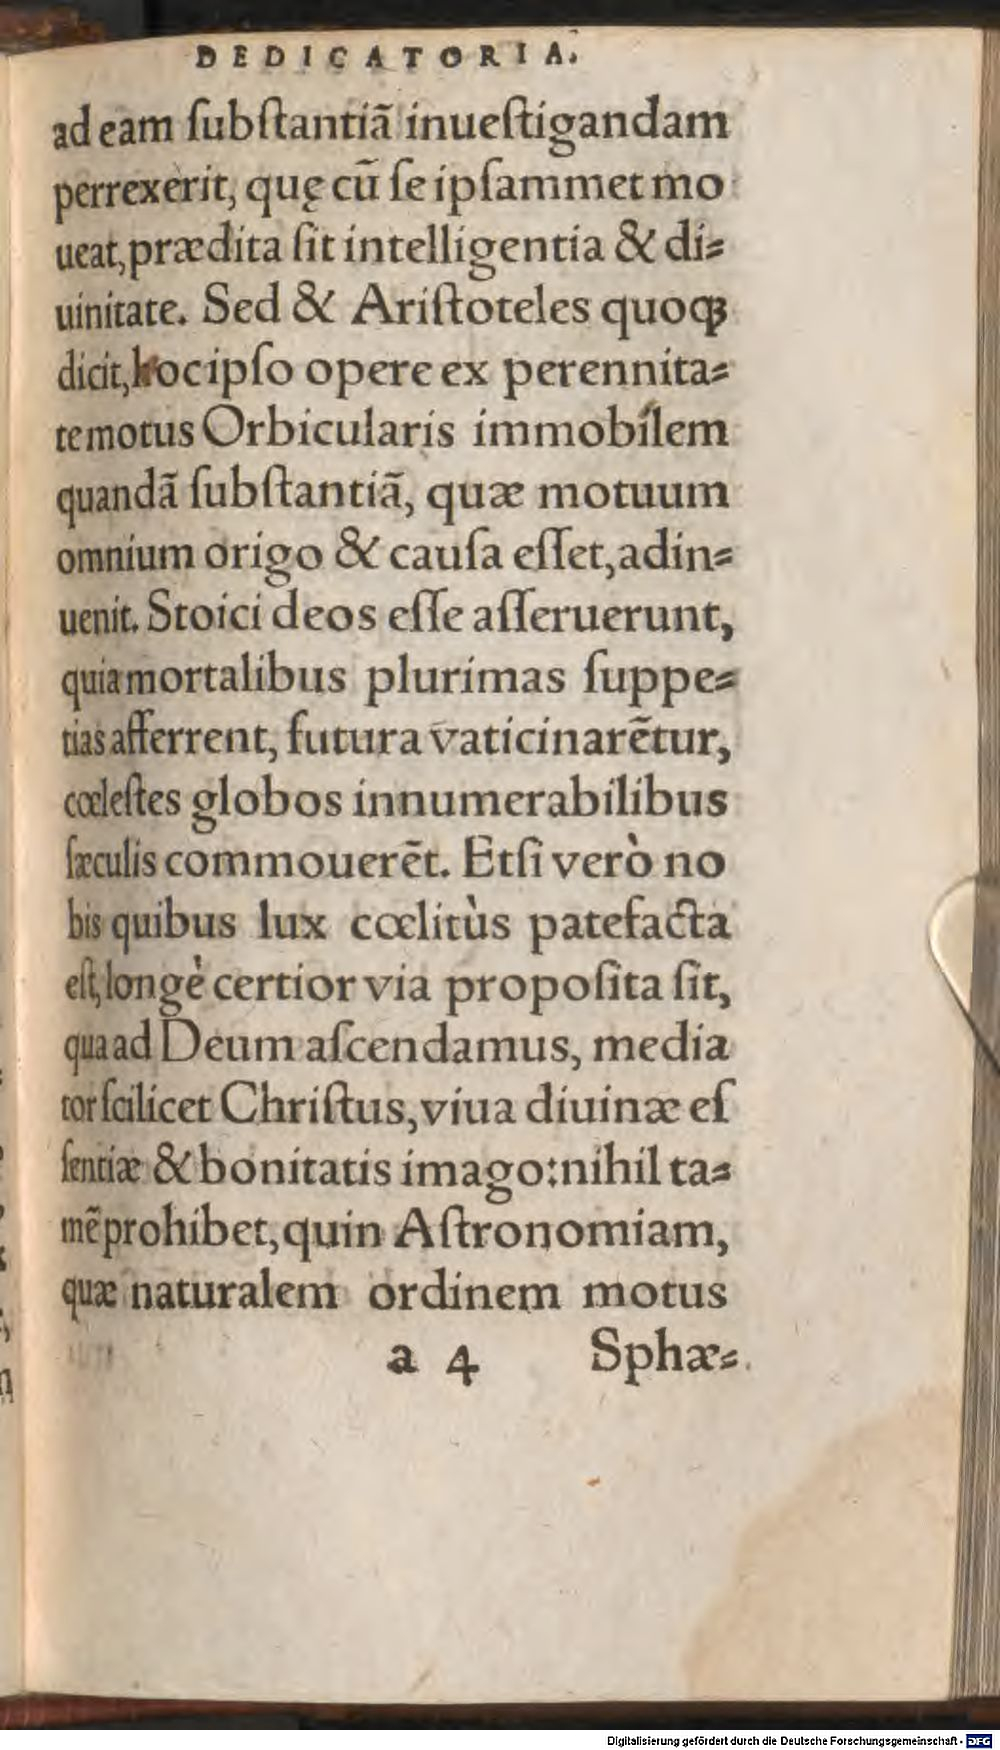 DEDICATORIA.
ad eam ſubſtantiã inueſtigandam
perrexerit, quę cũ ſe ipſammet mo
ueat, prædita ſit intelligentia & di⸗
uinitate. Sed & Ariſtoteles quoqꝫ
dicit, hoc ipſo opere ex perennita⸗
te motus Orbicularis immobilem
quandã ſubſtantiã, quæ motuum
omnium origo & cauſa eſſet, adin⸗
uenit. Stoici deos eſſe aſſeruerunt,
quia mortalibus plurimas ſuppe⸗
tias afferrent, futura vaticinarẽtur,
cœleſtes globos innumerabilibus
ſæculis commouerẽt. Etſi verò no
bis quibus lux cœlitùs patefacta
eſt, longè certior via propoſita ſit,
qua ad Deum aſcendamus, media
tor ſcilicet Chriſtus, viua diuinæ eſ
ſentiæ & bonitatis imago: nihil ta⸗
mẽ prohibet, quin Aſtronomiam,
quæ naturalem ordinem motus
a 4 Sphæ⸗
Digitalisierung gefördert durch die Deutsche Forschungsgemeinschaft - DFG